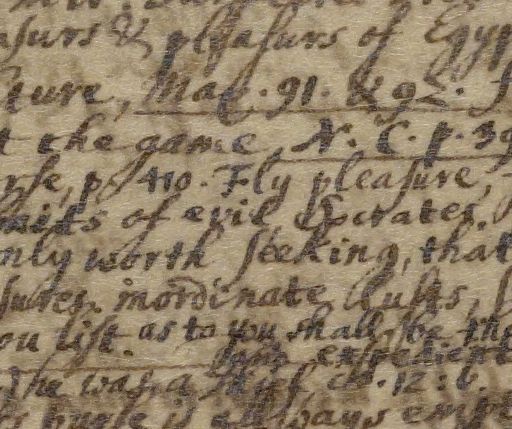 asurs & pleasurs of Egyp
ture, Mac. 91. & 92.
t the game, N. C. p. 39
rse, p. 410. Fly pleasure,
baits of evil, Socrates.
nly worth seeking, that
sures. inordinate lusts,
ou list. as to you shall be the
expedient
he was a thief ch. 12: 6.
purse is allways emp